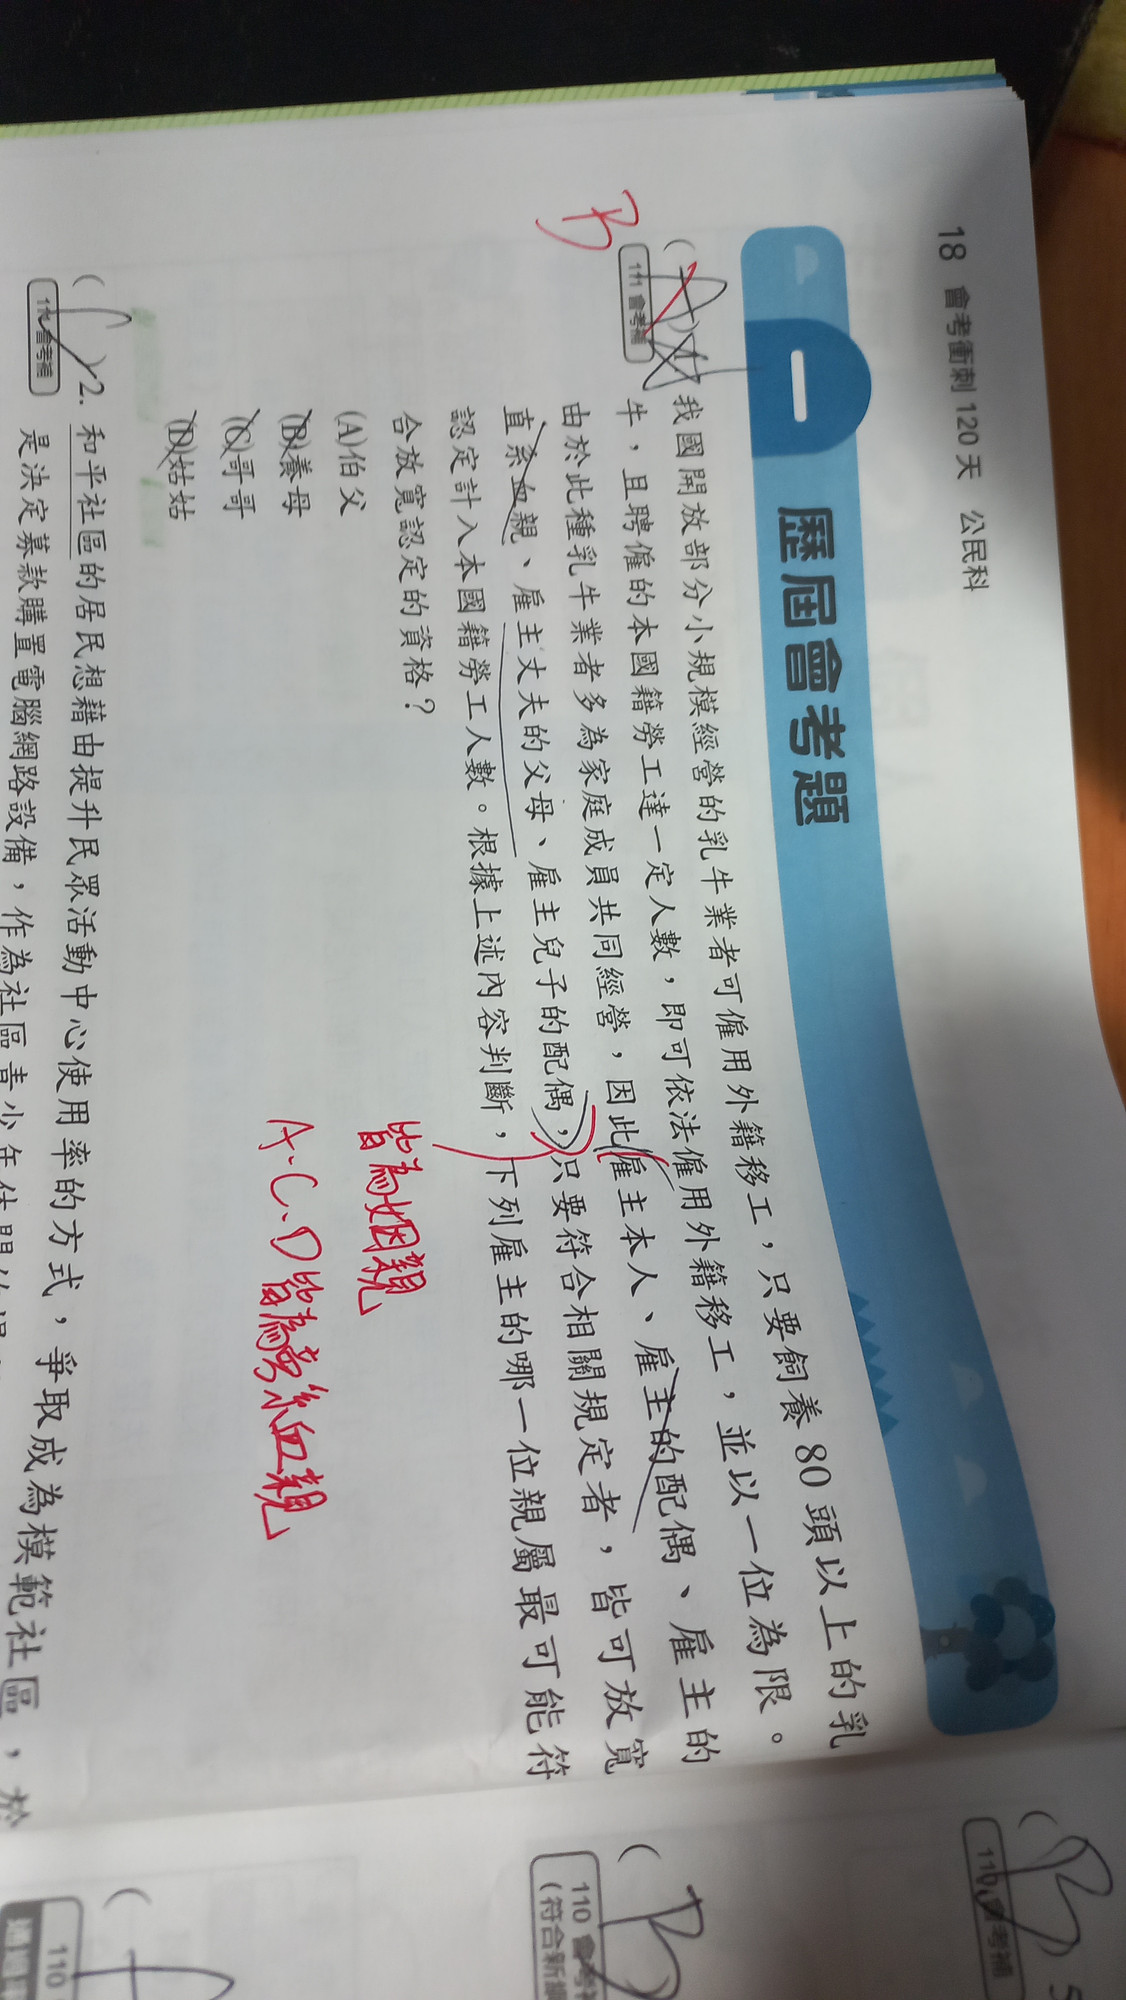 18 會考衝刺 120 天 公民科
一 歷屆會考題
B
111 會考補
我國開放部分小規模經營的乳牛業者可僱用外籍移工，只要飼養 80 頭以上的乳
牛，且聘僱的本國籍勞工達一定人數，即可依法僱用外籍移工，並以一位為限。
由於此種乳牛業者多為家庭成員共同經營，因此雇主本人、雇主的配偶、雇主的
直系血親、雇主丈夫的父母、雇主兒子的配偶，只要符合相關規定者，皆可放寬
認定計入本國籍勞工人數。根據上述內容判斷，下列雇主的哪一位親屬最可能符
合放寬認定的資格？
皆為姻親
(A)伯父
(B)養母
A、C、D皆為旁系血親
(C)哥哥
(D)姑姑
( C )2. 和平社區的居民想藉由提升民眾活動中心使用率的方式，爭取成為模範社區，於
會考補
是決定募款購置電腦網路設備，作為社區青少年休閒的場
( B
110 會考補
5
( B )
110 會考補
(符合新綱
(
110